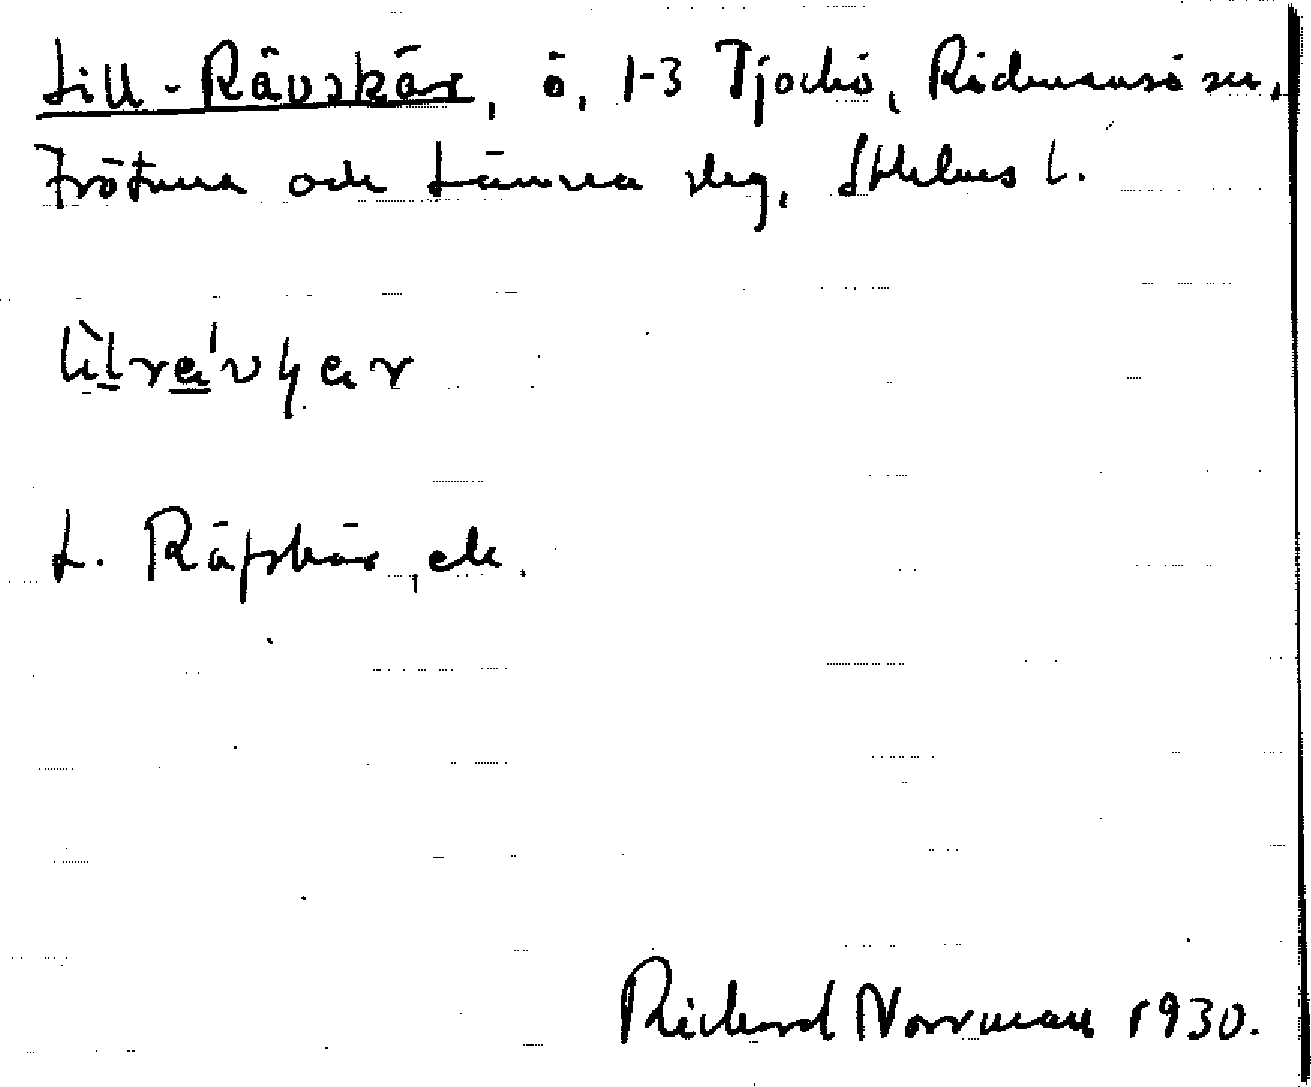 Lill-Rävskär, ö, 1-3 Tjockö, Rådmansö sn,
Frötuna och Länna skg, Sthlms l.
L. Räfskär, ek.
Richard Norrman 1930.